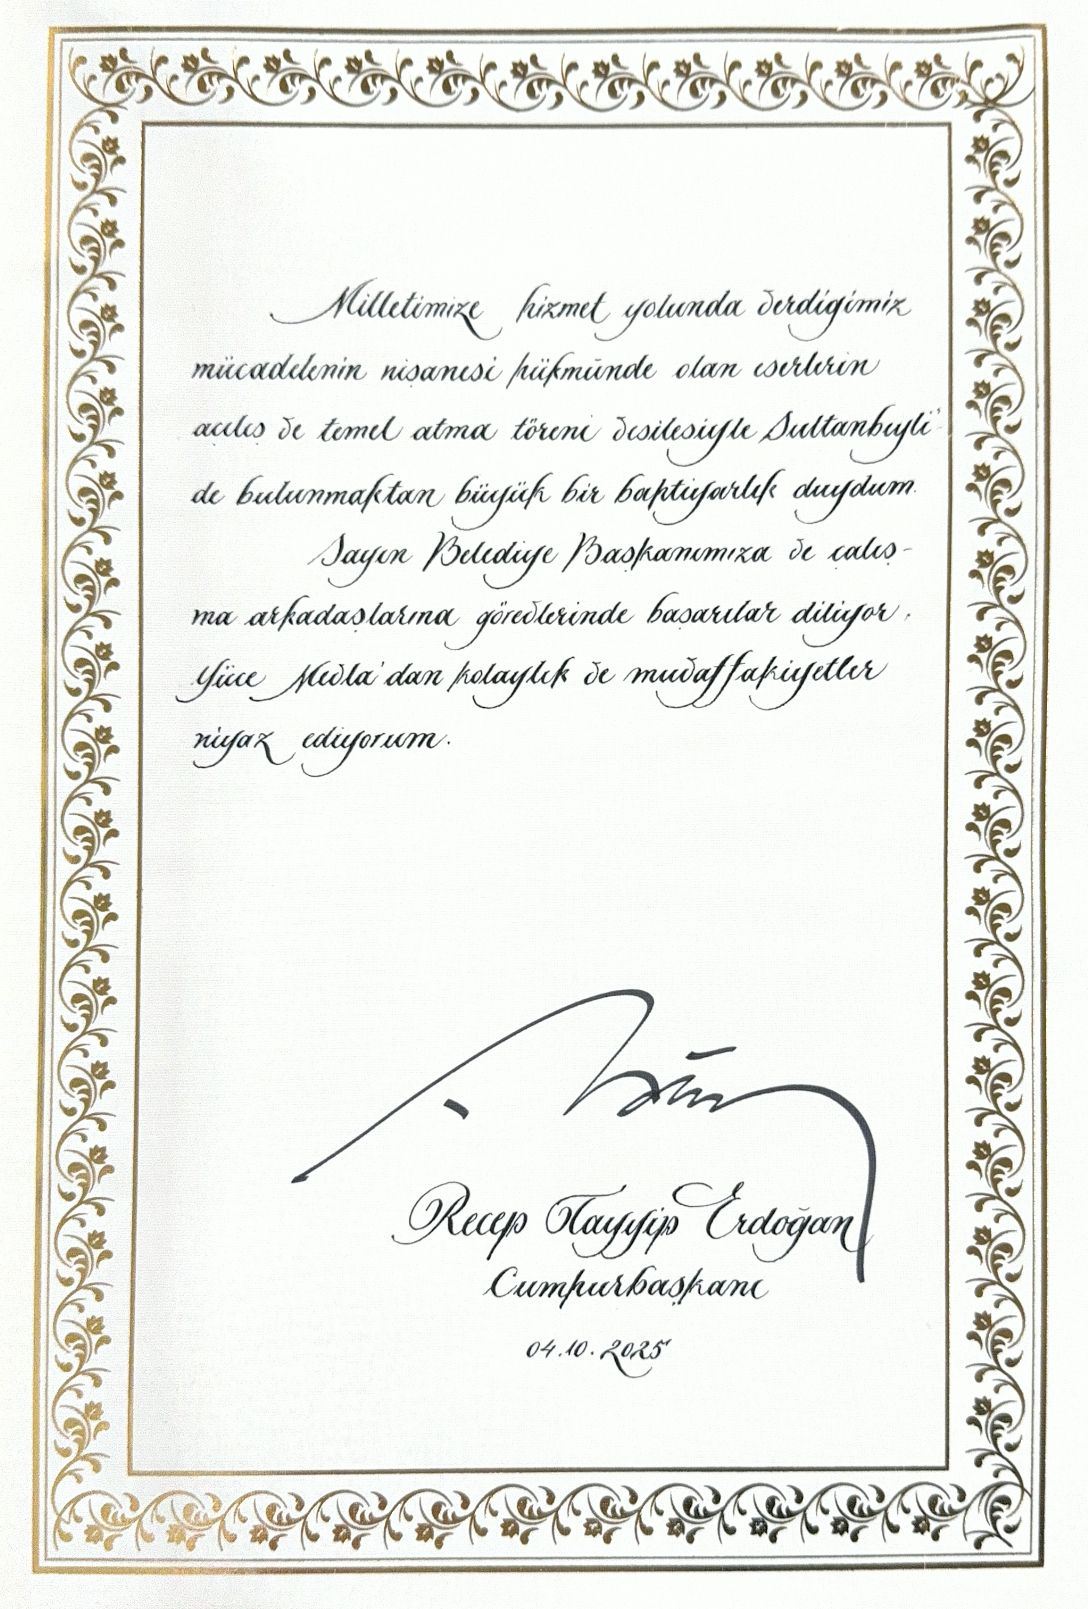 Milletimize hizmet yolunda verdiğimiz
mücadelenin nişanesi hükmünde olan eserlerin
açılış ve temel atma töreni vesilesiyle Sultanbeyli'
de bulunmaktan büyük bir bahtiyarlık duydum.
Sayın Belediye Başkanımıza ve çalış-
ma arkadaşlarına görevlerinde başarılar diliyor,
Yüce Mevla'dan kolaylık ve muvaffakiyetler
niyaz ediyorum.
Recep Tayyip Erdoğan
Cumhurbaşkanı
04.10.2025